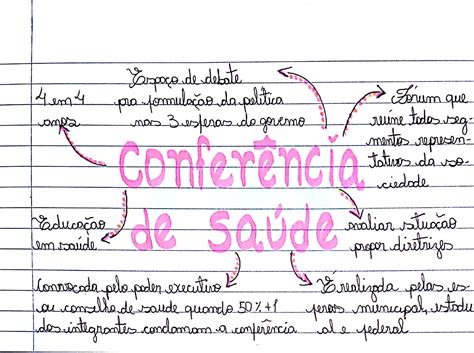 Espaço de debate
pra formulação da política
nas 3 esferas do governo
4 em 4
anos
Fórum que
reúne todos seg-
mentos represen-
tativos da so-
ciedade
Conferência
de saúde
Educação
em saúde
avaliar situação
propor diretrizes
Convocada pelo poder executivo
ou conselho de saude quando 50%+1
dos integrantes condamam a conferência
É realizada pelas es-
feras municipal, estadu
al e federal